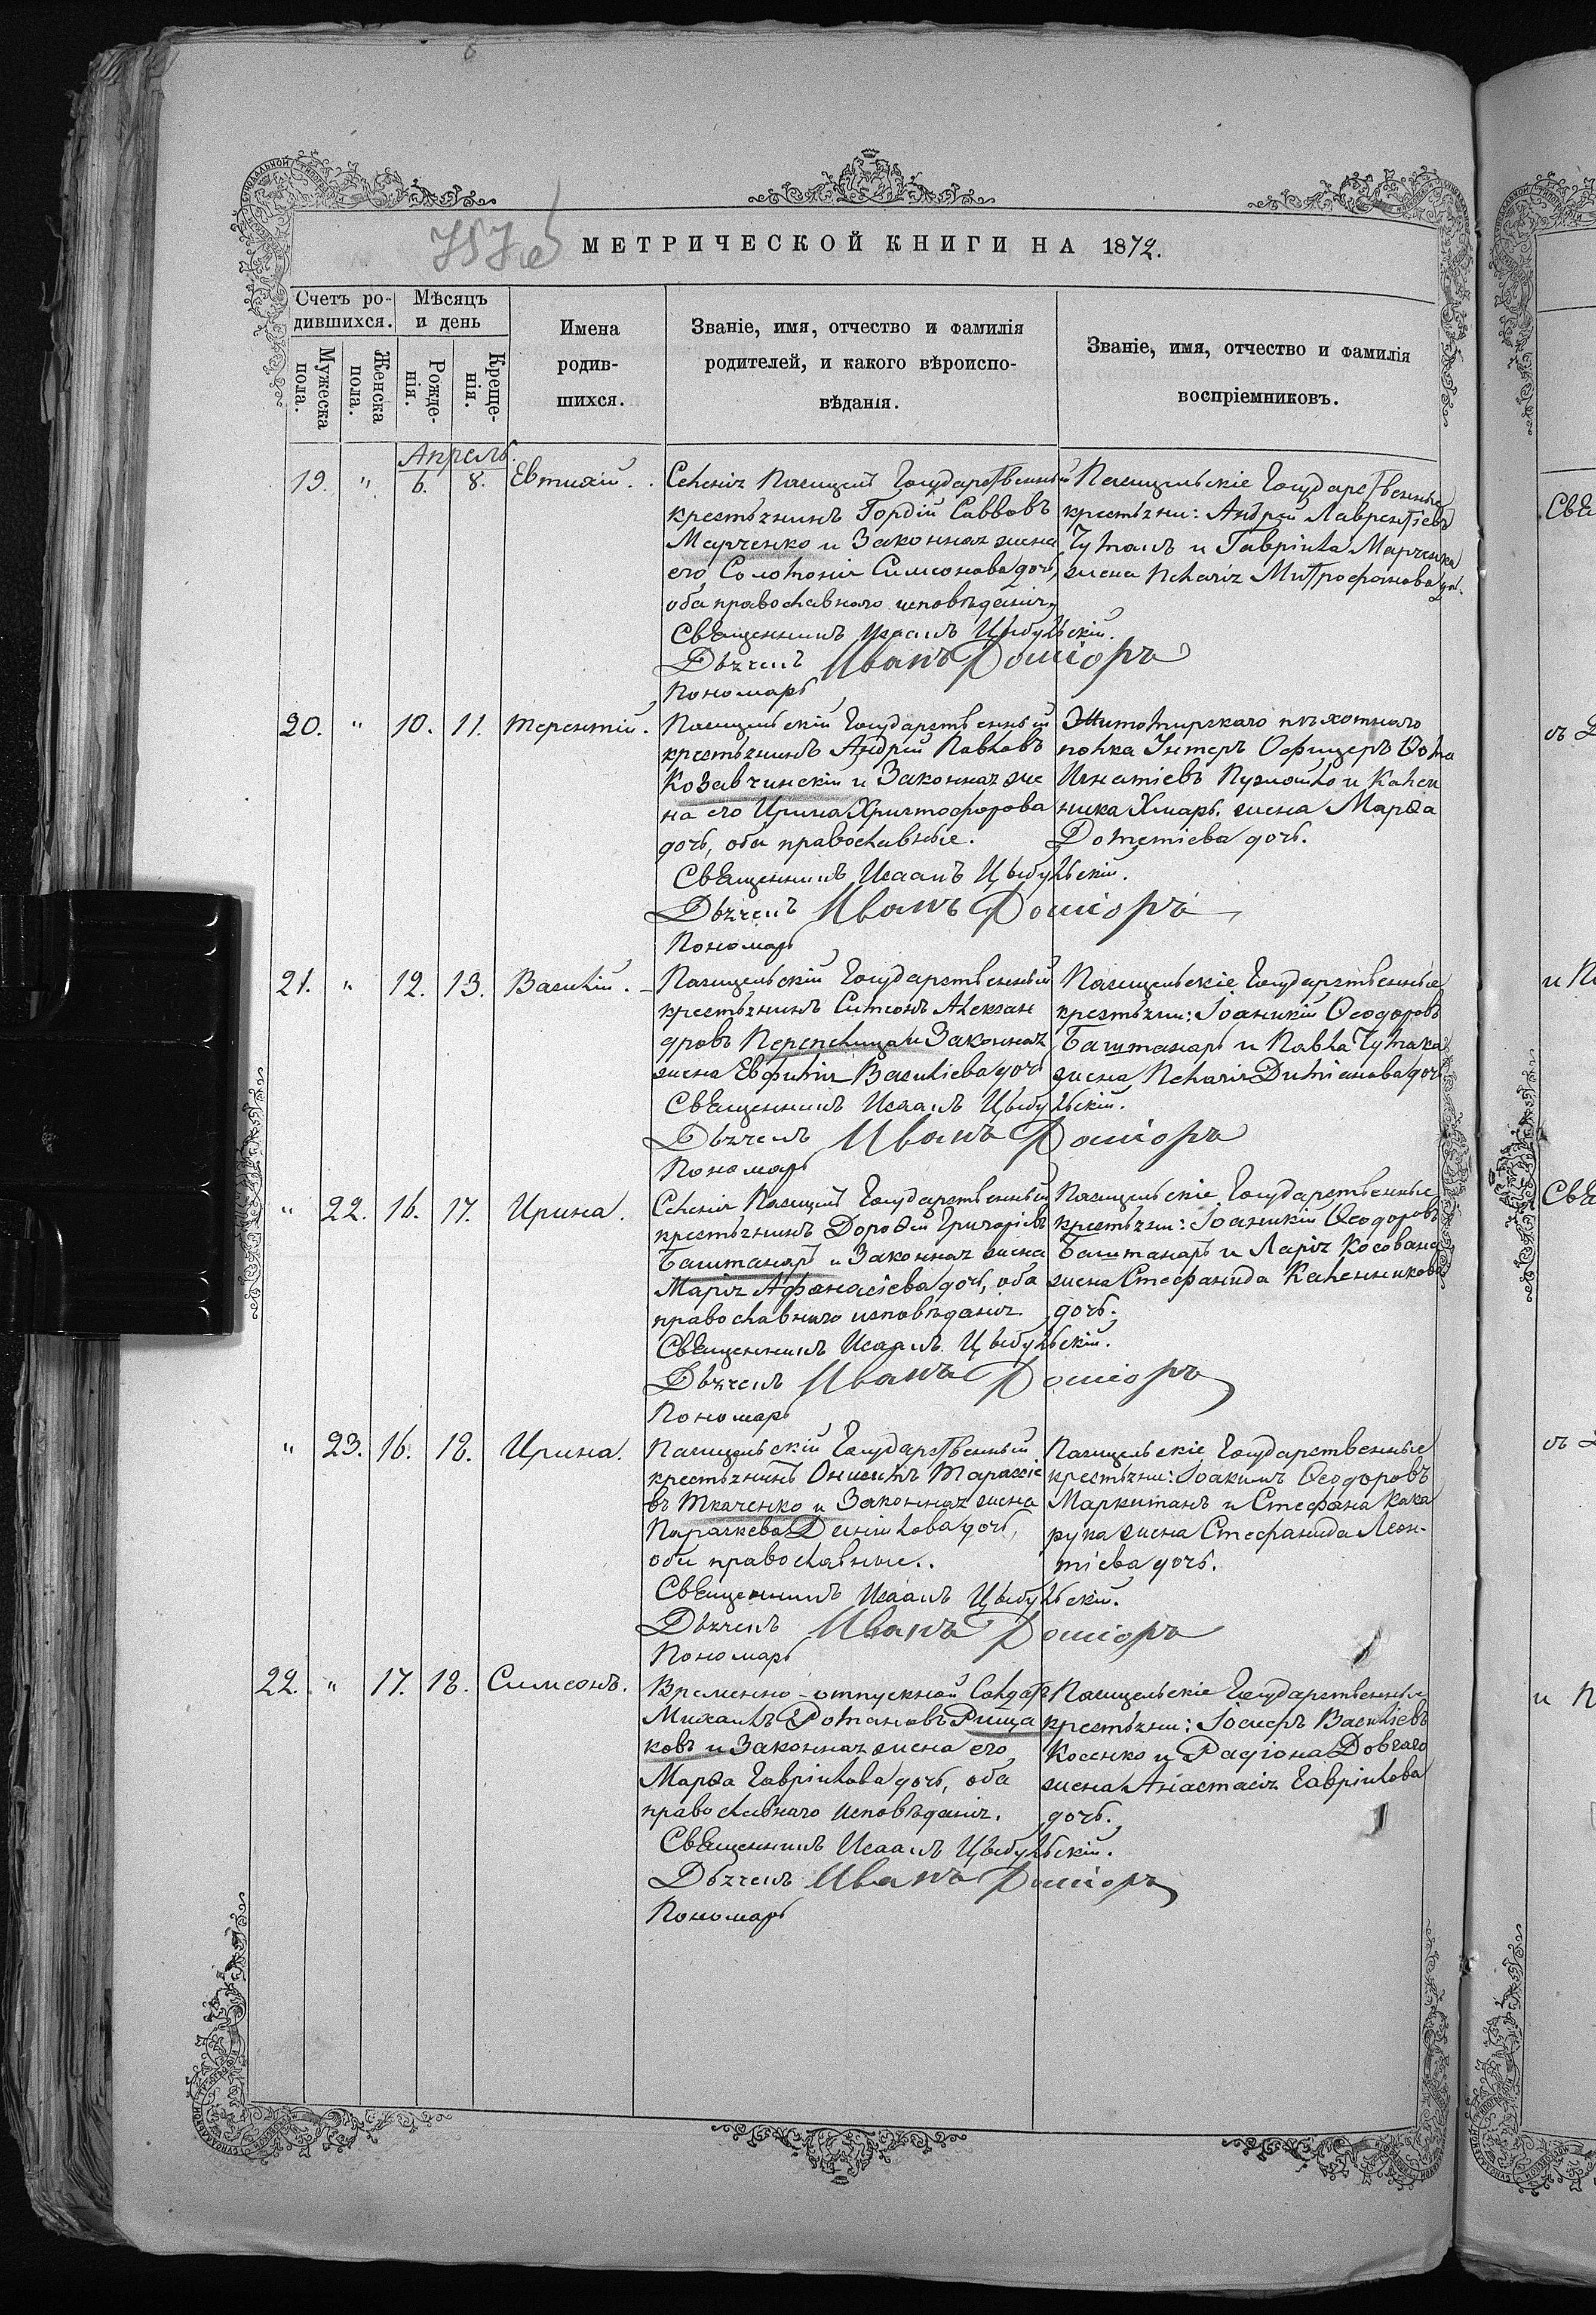 МЕТРИЧЕСКОЙ КНИГИ НА 1872.
Счетъ ро-
дившихся.
Мужеска
пола.
Женска
пола.
Мѣсяцъ
и день
Рожде-
нія.
Креще-
нія.
Имена
родив-
шихся.
Званіе, имя, отчество и фамилія
родителей, и какого вѣроиспо-
вѣданія.
Званіе, имя, отчество и фамилія
воспріемниковъ.
Апрель.
19. " 6. 8. Евтихій.
Селенія Государственный
крестьянинъ Гордій Савовъ
Марченко и Законная жена
его Соломонія Симеонова дочь,
оба православнаго исповѣданія,
Священникъ Исаакъ Цыбульскій.
Дьячекъ Иванъ
Пономарь
Государственные
крестьяне: Андрей Лаврентіевъ
Чумакъ и Гавріила Марченка
жена Пелагія Митрофанова доч.
20. " 10. 11. Терентій.
Государственный
крестьянинъ Андрей Павловъ
Козавчинскій и Законная же
на его Ирина Христофорова
дочь, оба православные.
Священникъ Исаакъ Цыбульскій.
Дьячекъ Иванъ
Пономарь
Житомирскаго пѣхотнаго
полка Унтеръ Офицеръ Ѳома
Игнатіевъ и Кален
ника Хмарь. жена Марѳа
Дометіева дочь.
21. " 12. 13. Василій.
Государственный
крестьянинъ Симеонъ Алексан
дровъ Перепелица и Законная
жена Евфимія Василіева дочь
Священникъ Исаакъ Цыбульскій.
Дьячекъ Иванъ
Пономарь
Государственные
крестьяне: Іоанникій Ѳеодоровъ
Баштанарь и Павла Чумака
жена Пелагія Диміанова дочь
" 22. 16. 17. Ирина.
Селенія Государственный
крестьянинъ Дороѳей Григоріевъ
Баштанарь и Законная жена
Марія Афанасіева дочь, оба
православнаго исповѣданія
Священникъ Исаакъ Цыбульскій.
Дьячекъ Иванъ
Пономарь
Государственные
крестьяне: Іоанникій Ѳеодоровъ
Баштанарь и Ларія Косована
жена Стефанида Каленникова
дочь.
" 23. 16. 18. Ирина.
Государственный
крестьянинъ Онисимъ Тарасіе
въ Ткаченко и Законная жена
Параскева дочь,
оба православные.
Священникъ Исаакъ Цыбульскій.
Дьячекъ Иванъ
Пономарь
Государственные
крестьяне: Іоакимъ Ѳеодоровъ
Маркитанъ и Стефана Кака
рука жена Стефанида Леон-
тіева дочь.
22. " 17. 18. Симеонъ.
Временно-отпускной Солдатъ
Михаилъ Романовъ Рища
ковъ и Законная жена его
Марѳа Гавріилова дочь, оба
православнаго исповѣданія.
Священникъ Исаакъ Цыбульскій.
Дьячекъ Иванъ
Пономарь
Государственные
крестьяне: Іосифъ Василіевъ
Косенко и Радіона Довгаго
жена Анастасія Гавріилова
дочь.